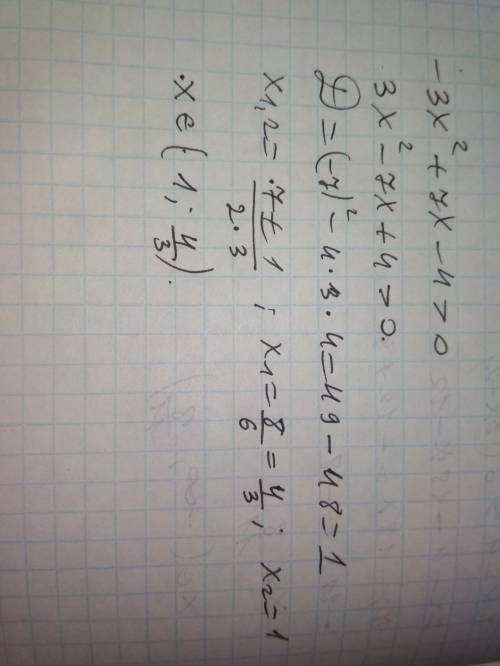 -3x² + 7x - 4 > 0
3x² - 7x + 4 > 0.
D = (-7)² - 4·3·4 = 49 - 48 = 1
x1,2 = 7 ± 1 / 2·3 ; x1 = 8/6 = 4/3; x2 = 1
x ∈ (1; 4/3).